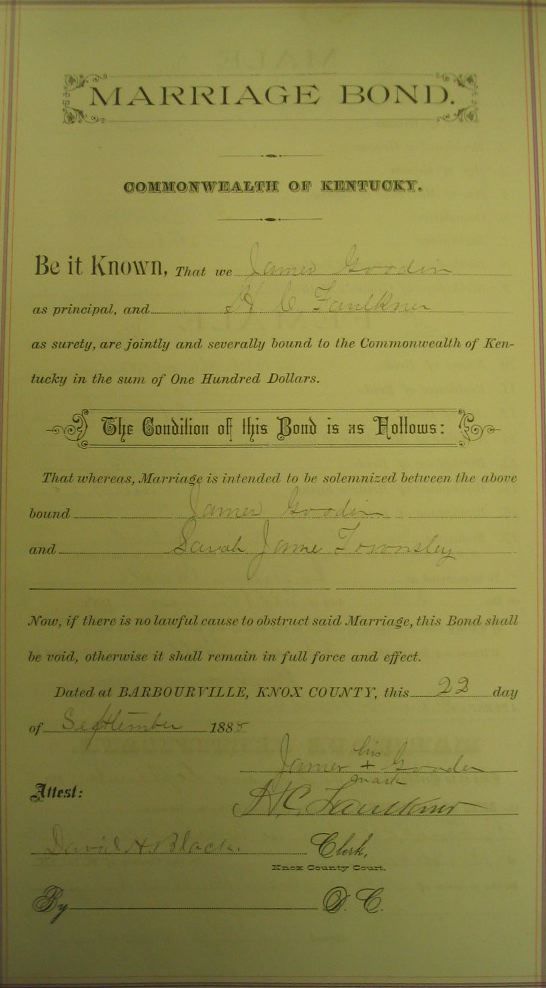 MARRIAGE BOND.
COMMONWEALTH OF KENTUCKY.
Be it Known, That we James Goodin
as principal, and H C Faulkner
as surety, are jointly and severally bound to the Commonwealth of Ken-
tucky in the sum of One Hundred Dollars.
The Condition of this Bond is as Follows:
That whereas, Marriage is intended to be solemnized between the above
bound James Goodin
and Sarah Jane Townsley
Now, if there is no lawful cause to obstruct said Marriage, this Bond shall
be void, otherwise it shall remain in full force and effect.
Dated at BARBOURVILLE, KNOX COUNTY, this 22 day
of September 188
his
James + Gooden
mark
Attest:
H C Faulkner
David H Black. Clerk,
Knox County Court.
By D. C.